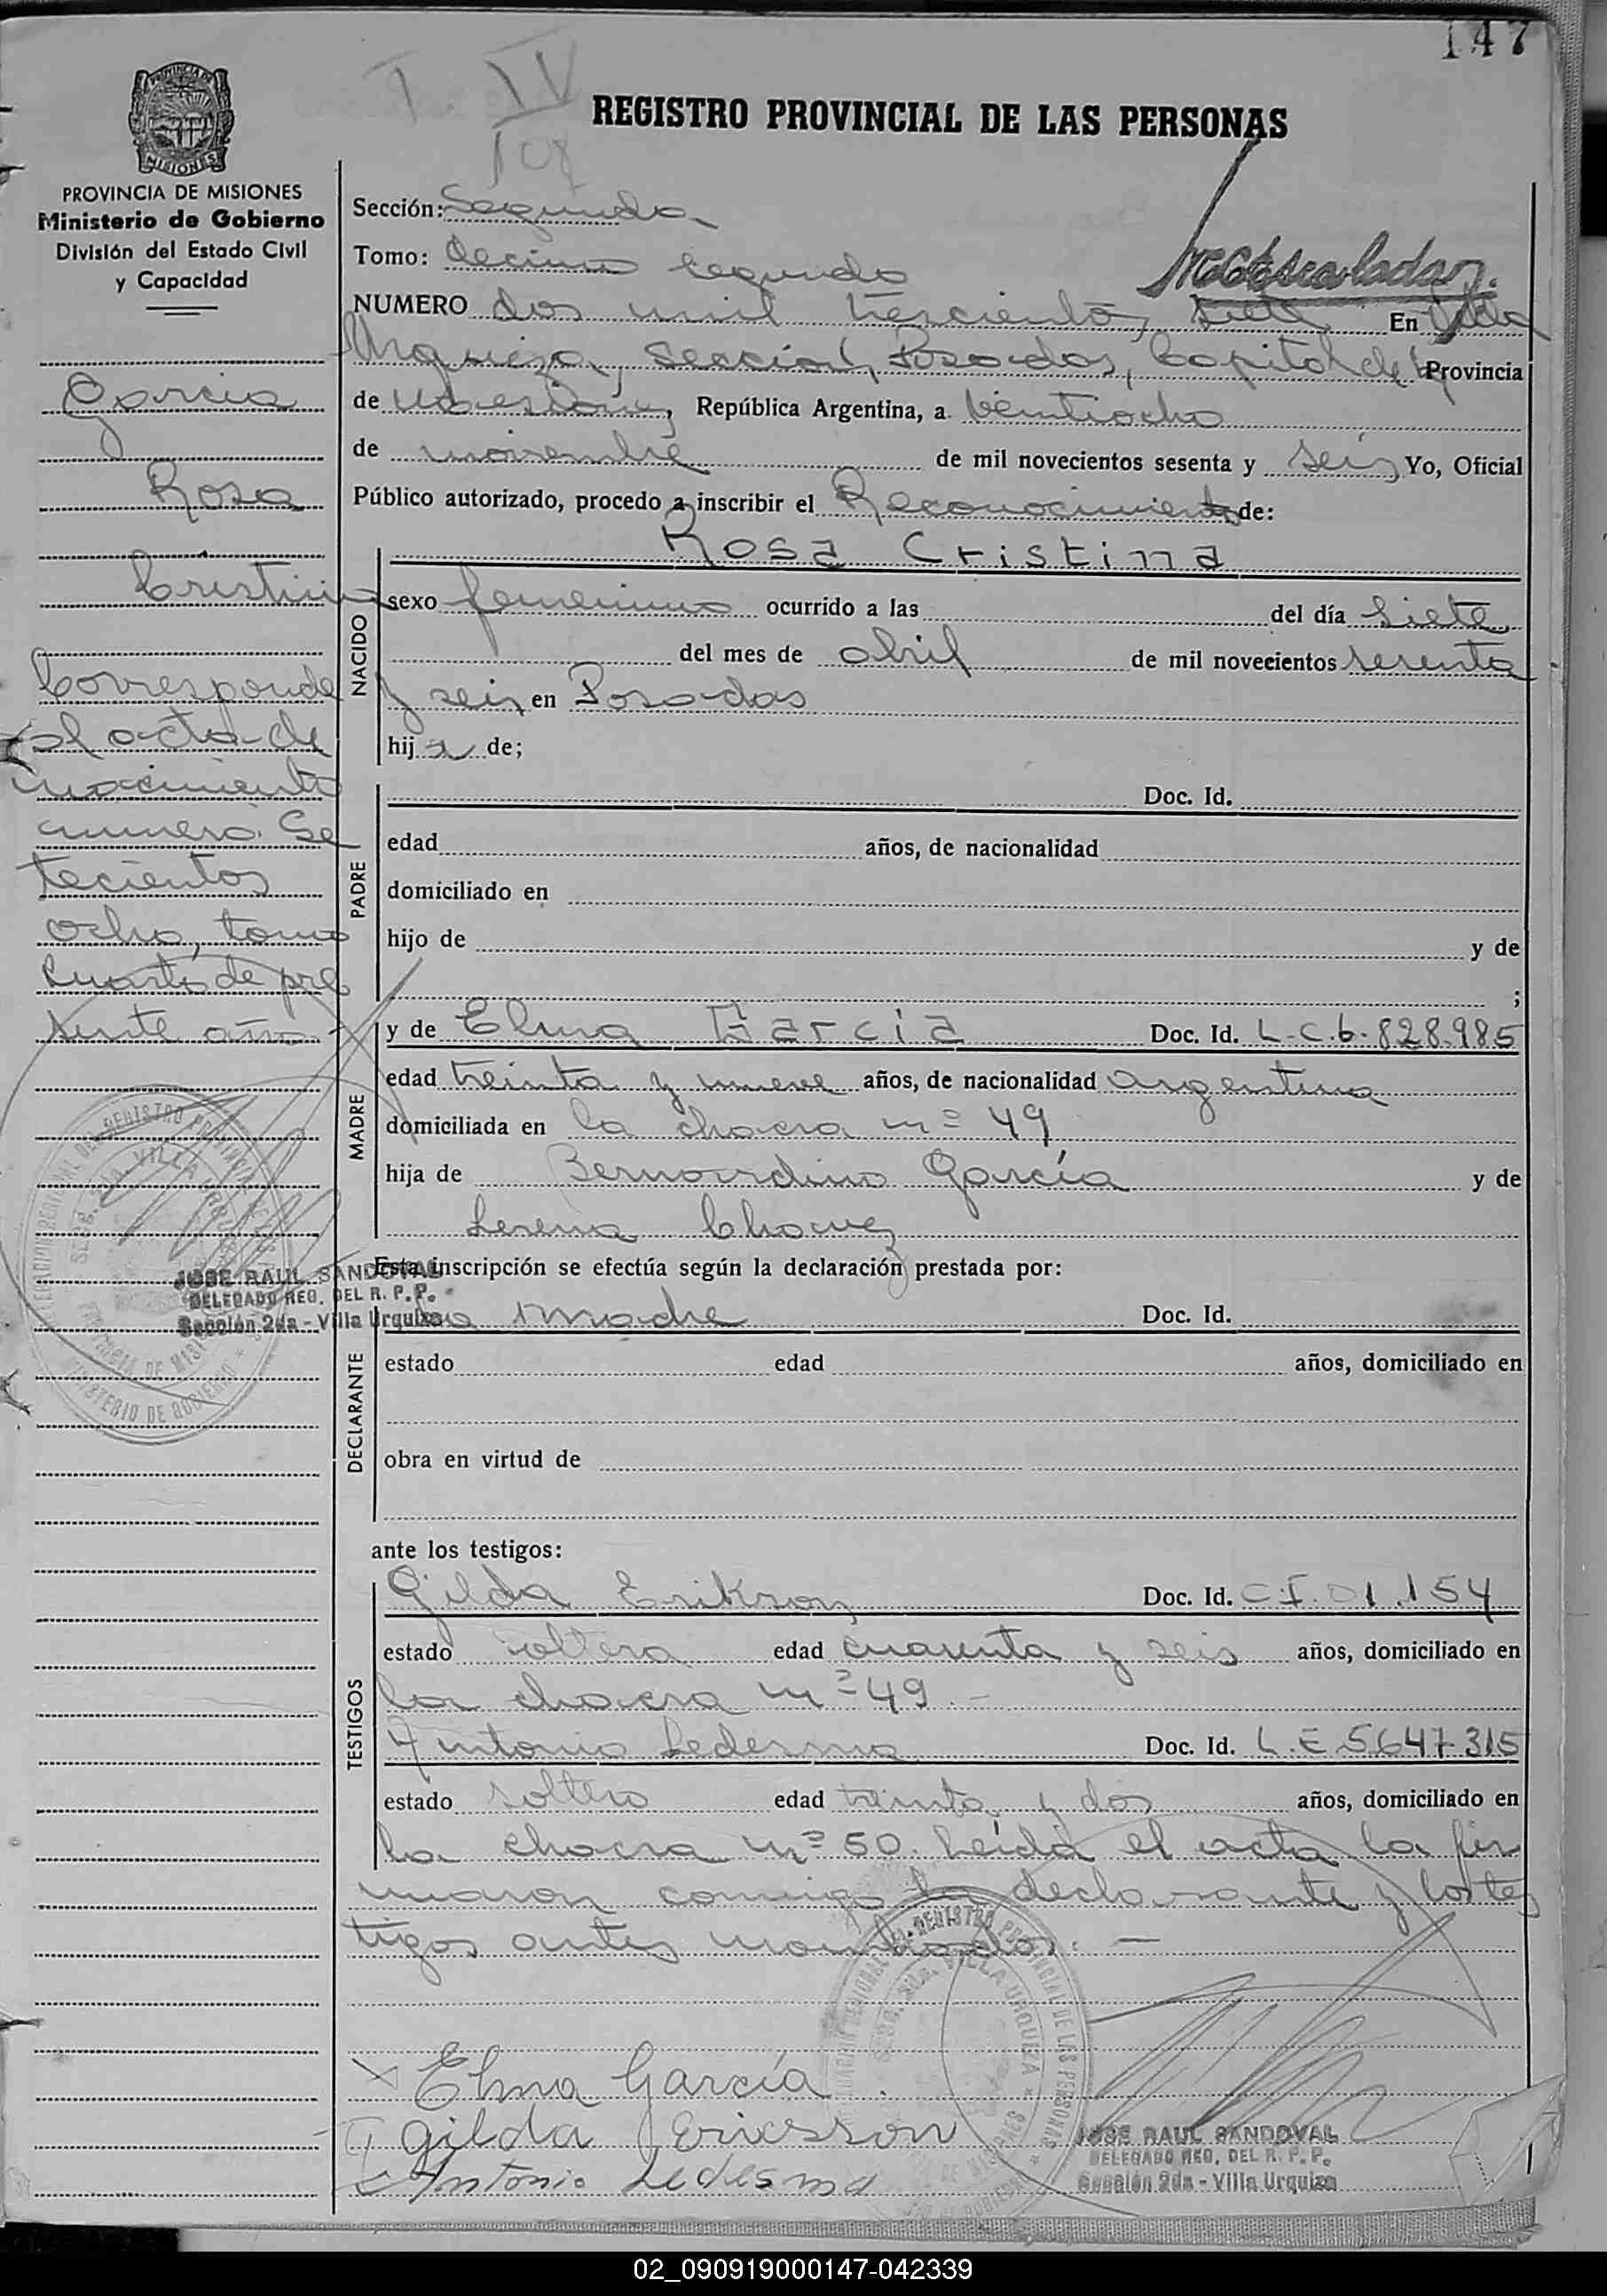 147
T. IV
108
REGISTRO PROVINCIAL DE LAS PERSONAS
PROVINCIA DE MISIONES
Ministerio de Gobierno
División del Estado Civil
y Capacidad
García
Rosa
Cristina
Corresponde
al acta de
nacimiento
numero Se
tecientos
ocho, tomo
cuarto de pre
sente año
JOSE RAUL SANDOVAL
DELEGADO REG. DEL R. P. P.
Sección 2da - Villa Urquiza
Sección: Segunda
Tomo: Decimo segundo
NUMERO dos mil trescientos siete En Villa
Urquiza, Seccional, Posadas, Capital de la Provincia
de Misiones, República Argentina, a veintiocho
de noviembre de mil novecientos sesenta y seis Yo, Oficial
Público autorizado, procedo a inscribir el Reconocimiento de:
Rosa Cristina
NACIDO
sexo femenino ocurrido a las del día siete
del mes de abril de mil novecientos sesenta
y seis en Posadas
hija de;
PADRE
Doc. Id.
edad años, de nacionalidad
domiciliado en
hijo de y de
;
MADRE
y de Elma García Doc. Id. L.C. 6.828.985
edad treinta y nueve años, de nacionalidad argentina
domiciliada en la chacra nº 49
hija de Bernardino García y de
Chavez
Esta inscripción se efectúa según la declaración prestada por:
DECLARANTE
la madre Doc. Id.
estado edad años, domiciliado en
obra en virtud de
ante los testigos:
TESTIGOS
Gilda Erikson Doc. Id. C.I. 01.154
estado soltera edad cuarenta y seis años, domiciliado en
la chacra nº 49.-
Antonio Ledesma Doc. Id. L.E 5647315
estado soltero edad treinta y dos años, domiciliado en
la chacra nº 50. Leída el acta la fir
maron conmigo la declarante y los tes
tigos antes nombrados. —
Elma García
Gilda Ericsson
Antonio Ledesma
JOSE RAUL SANDOVAL
DELEGADO REG. DEL R. P. P.
Sección 2da - Villa Urquiza
02_090919000147-042339